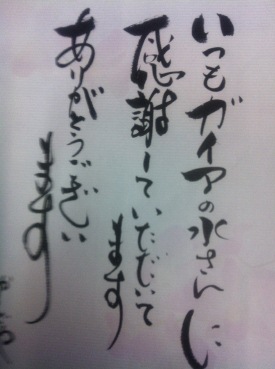 いつもガイアの水さんに
感謝していただいて
ます
ありがとうござい
ます